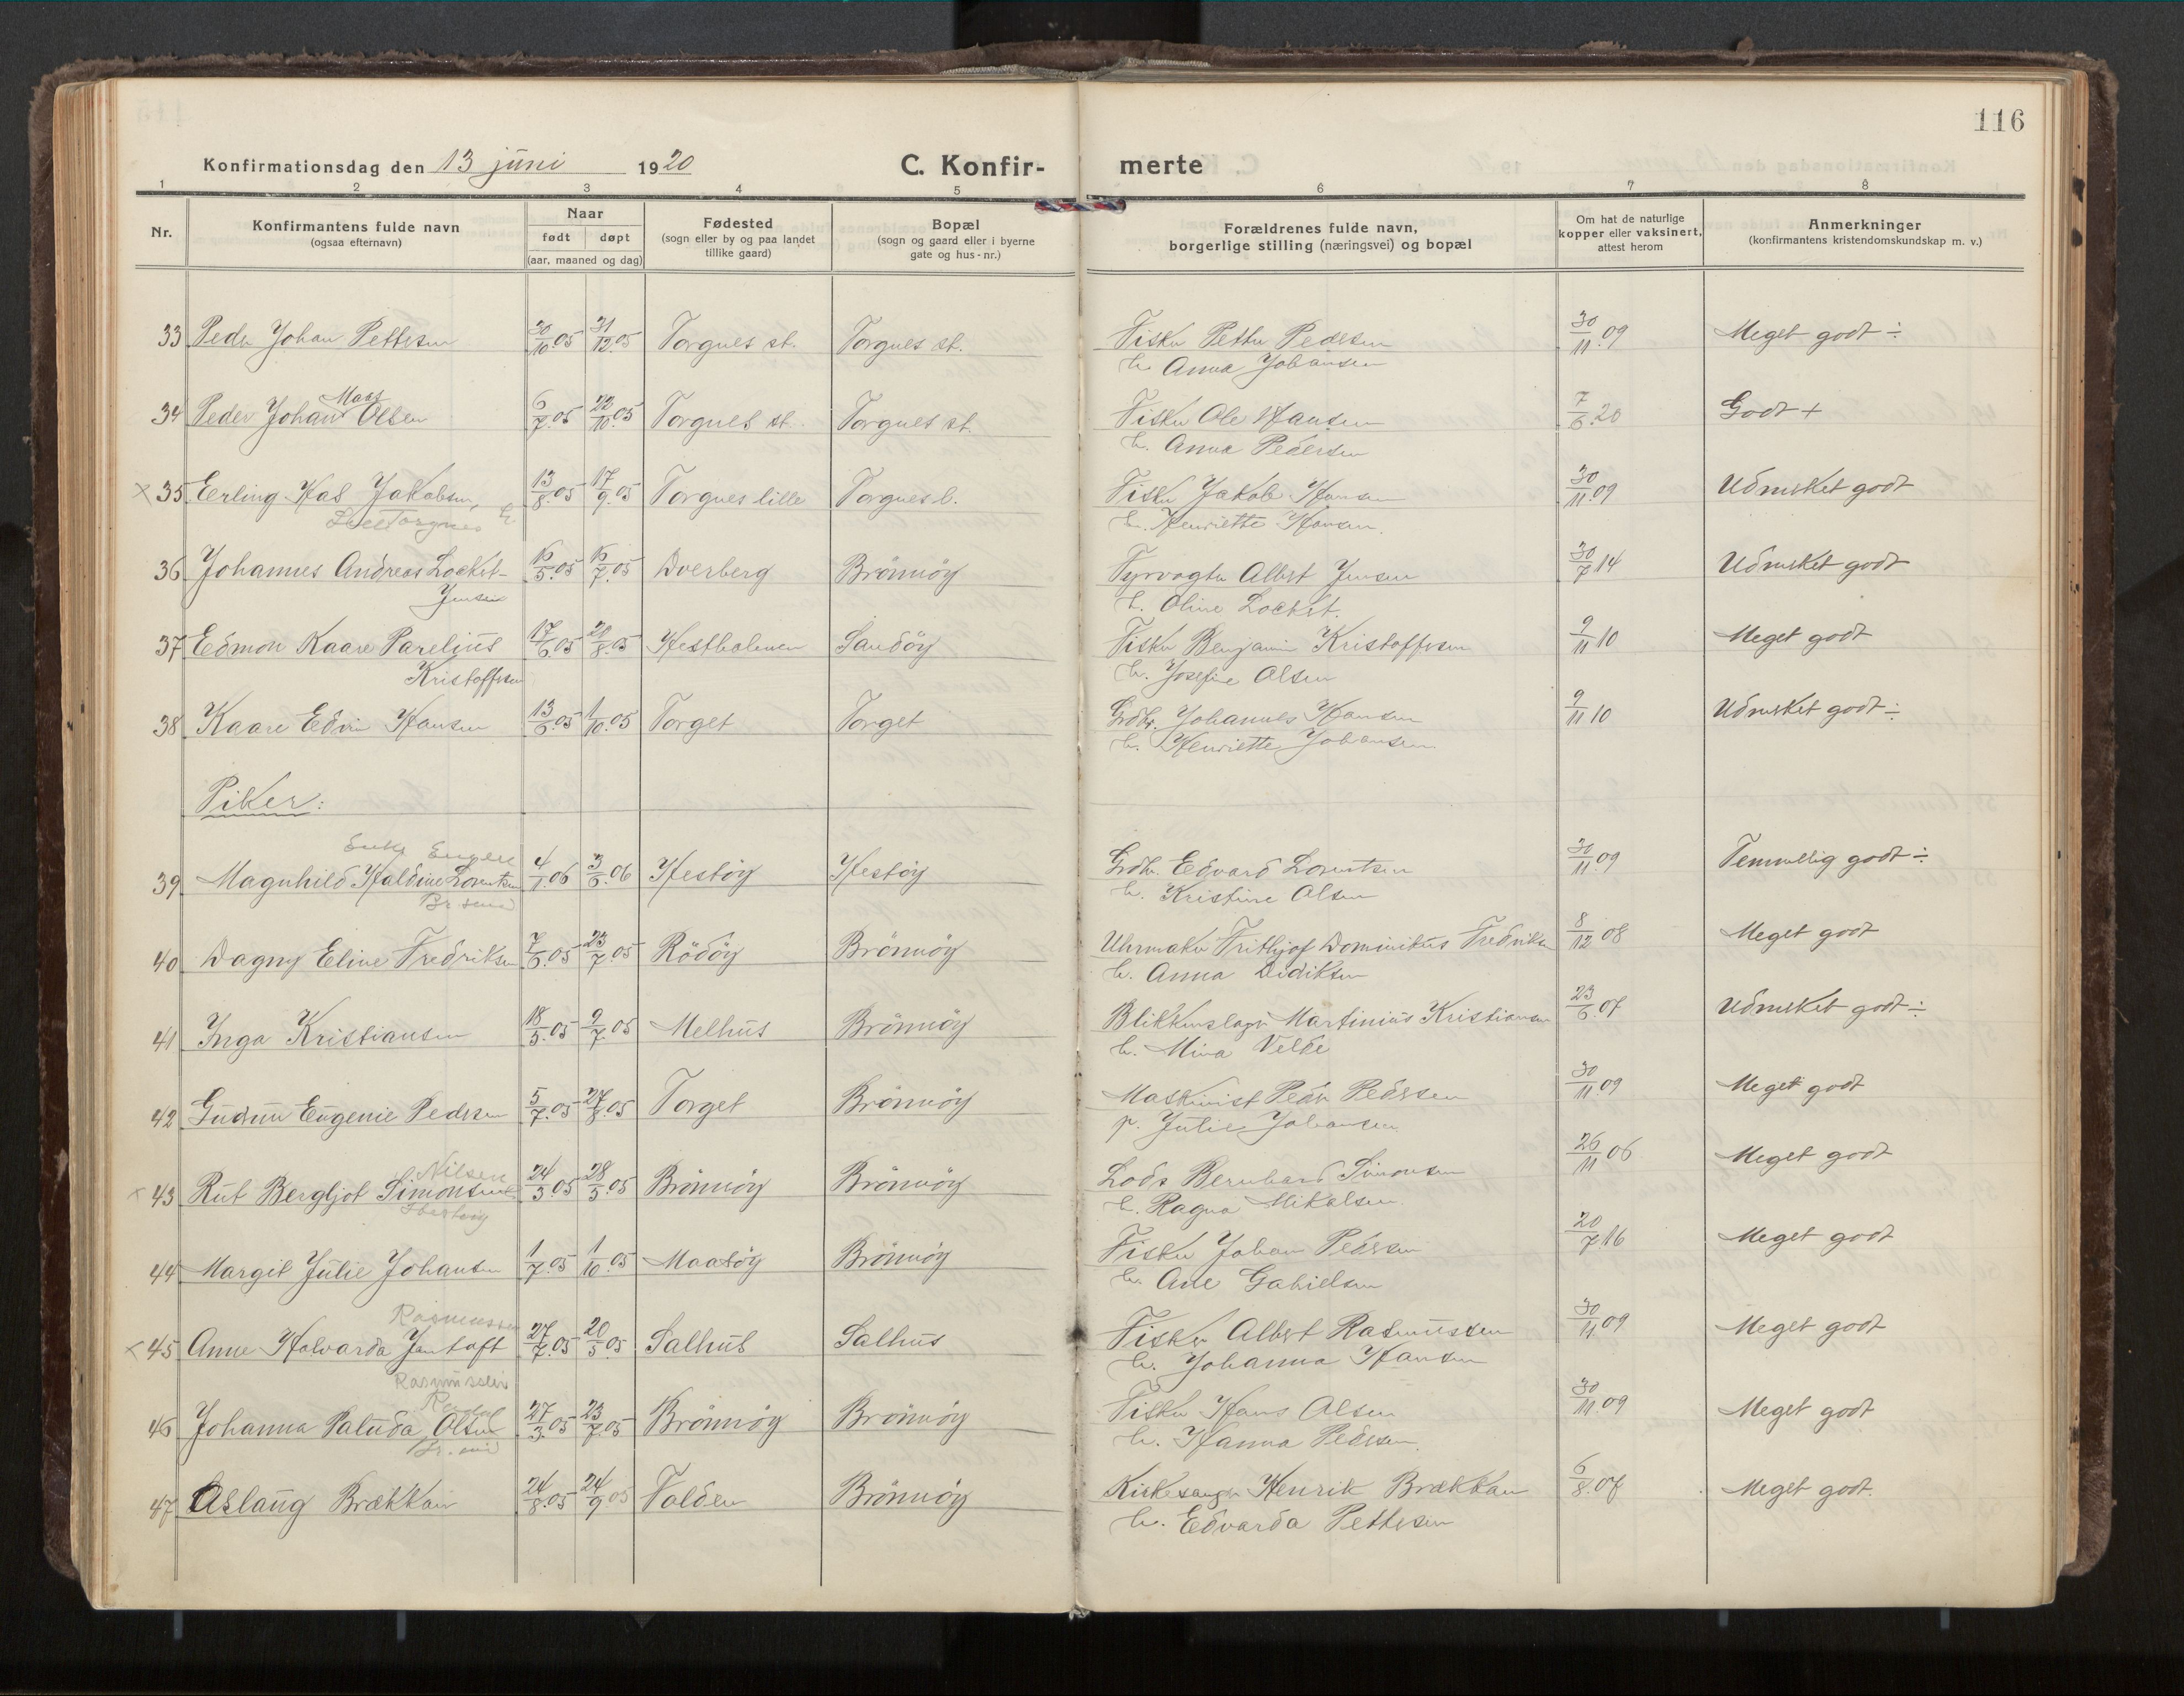 116
Konfirmationsdag den 13 juni 1920 C. Konfir- merte
1 2 3 4 5 6 7 8
Nr. Konfirmantens fulde navn (ogsaa efternavn) Naar født døpt (aar, maaned og dag) Fødested (sogn eller by og paa landet tillike gaard) Bopæl (sogn og gaard eller i byerne gate og hus-nr.) Forældrenes fulde navn, borgerlige stilling (næringsvei) og bopæl Om hat de naturlige kopper eller vaksinert, attest herom Anmerkninger (konfirmantens kristendomskundskap m. v.)
33 Peder Johan Pettersen 30/10.05 31/12.05 Torgnes st. Torgnes st. Fisker Petter Pedersen 30/11.09 Meget godt ÷
h. Anna Johansen
Maas
34 Peder Johan Olsen 6/7.05 22/10.05 Torgnes st. Torgnes st. Fisker Ole Hansen 7/6.20 Godt +
h. Anna Pedersen
x 35 Erling Has Jakobsen, 13/8.05 17/9.05 Torgnes lille Torgnes l. Fisker Jakob Hansen 30/11.09 Udmerket godt
Torgnes h. Henriette Hansen.
36 Johannes Andreas Lockert- 16/5.05 16/7.05 Dverberg Brönnöy Fyrvogter Albert Jensen 30/7 14 Udmerket godt
Jensen h. Oline Lockert.
37 Edmon Kaare Parelius 17/6.05 20/8.05 Hestholmen Sandöy Fisker Benjamin Kristoffersen 9/11 10 Meget godt
Kristoffersen h. Josefine Olsen
38 Kaare Edvin Hansen 13/6.05 1/10.05 Torget Torget Grdbr. Johannes Hansen 9/11 10 Udmerket godt ÷
h. Henriette Johansen
Piker:
39 Magnhild Haldine Lorentsen 4/1.06 3/6.06 Hestöy Hestöy Grdbr. Edvard Lorentsen 30/11.09 Temmelig godt ÷
h. Kristine Olsen
40 Dagny Eline Fredriksen 7/6.05 23/7.05 Rödöy Brönnöy Uhrmaker Frithjof Dominikus Fredriksen 8/12 08 Meget godt
h. Anna Didiksen
41 Inga Kristiansen 18/5.05 9/7.05 Melhus Brönnöy Blikkenslager Martinius Kristiansen 23/6.07 Udmerket godt ÷
h. Mina Velde
42 Gudrun Eugenie Pedersen 5/7.05 27/8.05 Torget Brönnöy Maskinist Peder Pedersen 30/11.09 Meget godt
p. Julie Johansen
Nilsen
x 43 Rut Bergljot Simonsen 24/3.05 28/5.05 Brönnöy Brönnöy Lods Bernhard Simonsen 26/11 06 Meget godt
h. Ragna Mikalsen
44 Margit Julie Johansen 1/7.05 1/10.05 Maasöy Brönnöy Fisker Johan Pedersen 20/7 16 Meget godt
h. Ane Gabrielsen
Rasmussen
x 45 Anne Halvarda Jentoft 27/7.05 20/5.05 Salhus Salhus Fisker Albert Rasmussen 30/11.09 Meget godt
Rasmussen h. Johanna Hansen
46 Johanna Paluda Olsen 27/3.05 23/7.05 Brönnöy Brönnöy Fisker Hans Olsen 30/11.09 Meget godt
h. Hanna Pedersen
47 Aslaug Brækkan 24/8.05 24/9.05 Folden Brönnöy Kirkesanger Henrik Brækkan 6/8.07 Meget godt.
h. Edvarda Pettersen